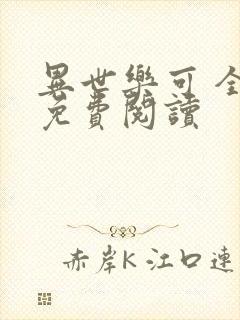 異世樂可 全
免費閱讀
赤岸K 江口連